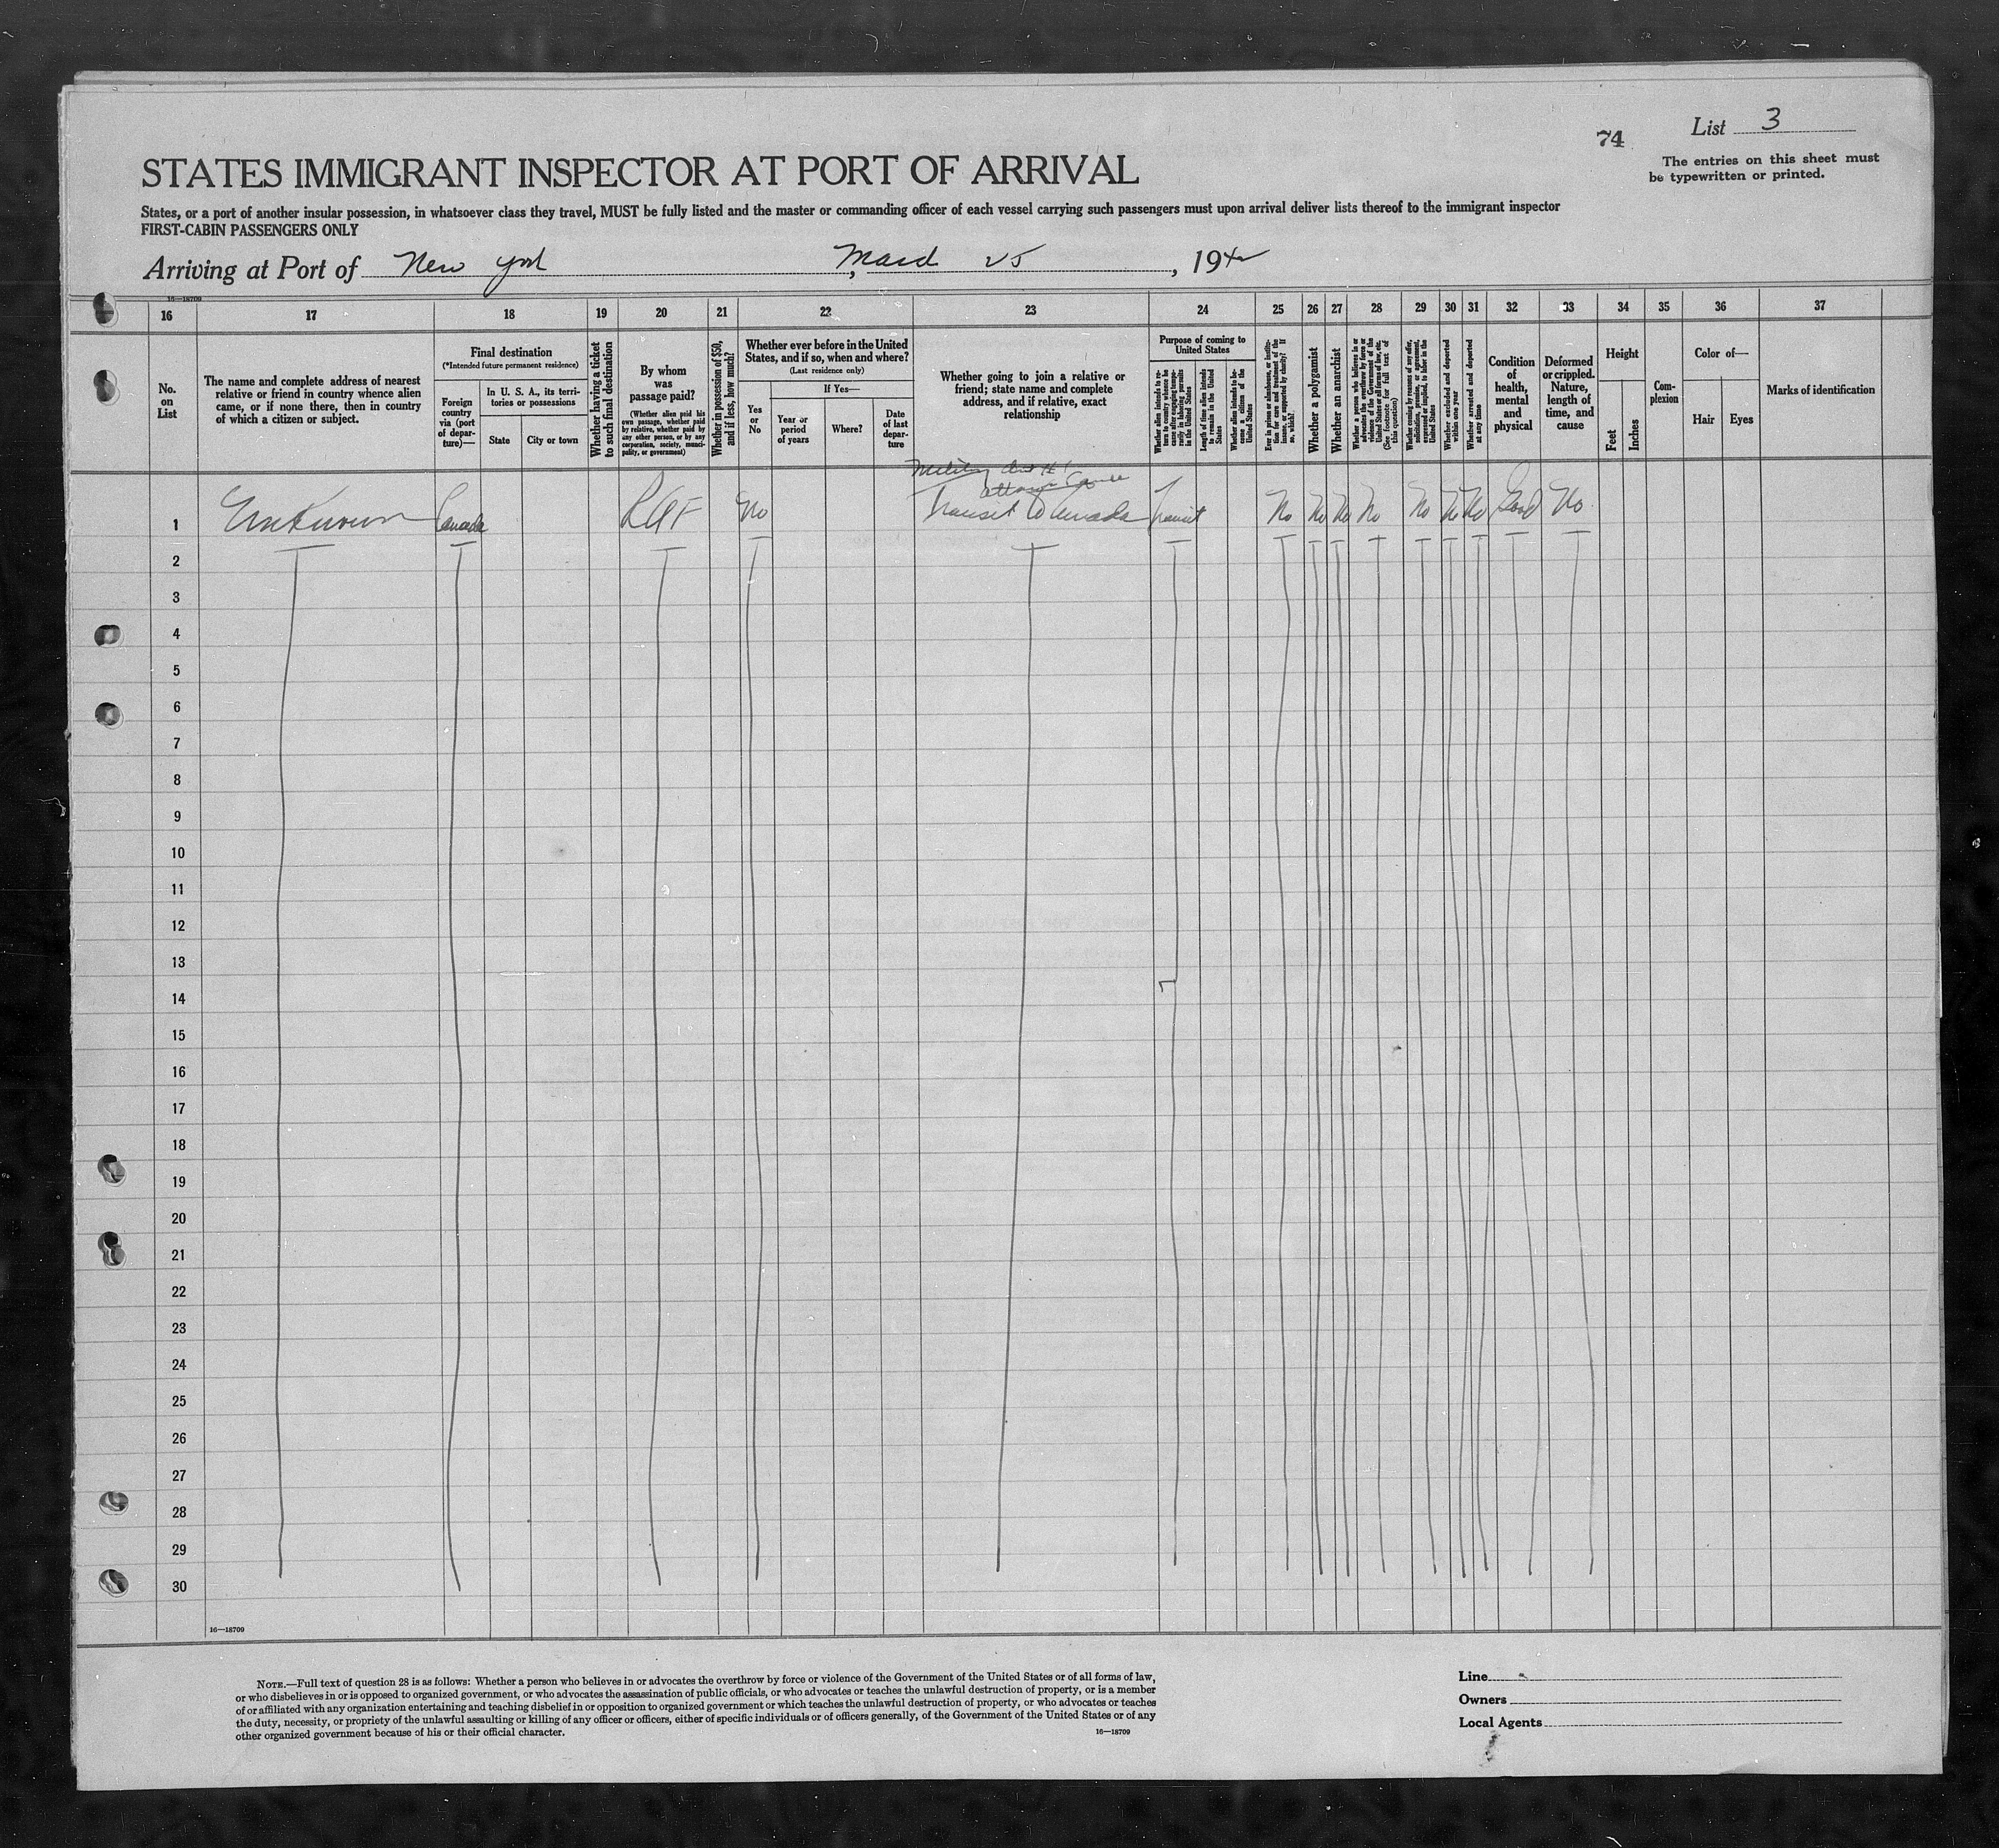 74
List 3
The entries on this sheet must
be typewritten or printed.
STATES IMMIGRANT INSPECTOR AT PORT OF ARRIVAL
States, or a port of another insular possession, in whatsoever class they travel, MUST be fully listed and the master or commanding officer of each vessel carrying such passengers must upon arrival deliver lists thereof to the immigrant inspector
FIRST-CABIN PASSENGERS ONLY
Arriving at Port of New York, March 25, 1942
16—18709
16 17 18 19 20 21 22 23 24 25 26 27 28 29 30 31 32 33 34 35 36 37
No.
on
List
The name and complete address of nearest
relative or friend in country whence alien
came, or if none there, then in country
of which a citizen or subject.
Final destination
(*Intended future permanent residence)
Foreign
country
via (port
of depar-
ture)—
In U. S. A., its terri-
tories or possessions
State
City or town
Whether having a ticket
to such final destination
By whom
was
passage paid?
(Whether alien paid his
own passage, whether paid
by relative, whether paid by
any other person, or by any
corporation, society, munici-
pality, or government)
Whether in possession of $50,
and if less, how much?
Whether ever before in the United
States, and if so, when and where?
(Last residence only)
Yes
or
No
If Yes—
Year or
period
of years
Where?
Date
of last
depar-
ture
Whether going to join a relative or
friend; state name and complete
address, and if relative, exact
relationship
Purpose of coming to
United States
Whether alien intends to re-
turn to country whence he
came after engaging tempo-
rarily in laboring pursuits
in the United States
Length of time alien intends
to remain in the United
States
Whether alien intends to be-
come a citizen of the
United States
Ever in prison or almshouse, or institu-
tion for care and treatment of the
insane, or supported by charity? If
so, which?
Whether a polygamist
Whether an anarchist
Whether a person who believes in or
advocates the overthrow by force or
violence of the Government of the
United States or all forms of law, etc.
(See footnote for full text of
this question)
Whether coming by reasons of any offer,
solicitation, promise, or agreement,
expressed or implied, to labor in the
United States
Whether excluded and deported
within one year
Whether arrested and deported
at any time
Condition
of
health,
mental
and
physical
Deformed
or crippled.
Nature,
length of
time, and
cause
Height
Feet
Inches
Com-
plexion
Color of—
Hair
Eyes
Marks of identification
Military
1 Unknown Canada RAF No Transit to Canada Transit No No No No No No No Good No
2
3
4
5
6
7
8
9
10
11
12
13
14
15
16
17
18
19
20
21
22
23
24
25
26
27
28
29
30
16—18709
NOTE.—Full text of question 28 is as follows: Whether a person who believes in or advocates the overthrow by force or violence of the Government of the United States or of all forms of law,
or who disbelieves in or is opposed to organized government, or who advocates the assassination of public officials, or who advocates or teaches the unlawful destruction of property, or is a member
of or affiliated with any organization entertaining and teaching disbelief in or opposition to organized government or which teaches the unlawful destruction of property, or who advocates or teaches
the duty, necessity, or propriety of the unlawful assaulting or killing of any officer or officers, either of specific individuals or of officers generally, of the Government of the United States or of any
other organized government because of his or their official character.
16—18709
Line
Owners
Local Agents